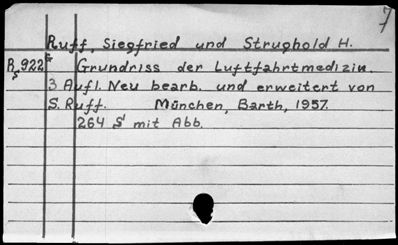 7
Ruff, Siegfried und Strughold H.
R 922 Grundriss der Luftfahrtmedizin.
3 Aufl. Neu bearb. und erweitert von
S. Ruff. München, Barth, 1957.
264 S mit Abb.